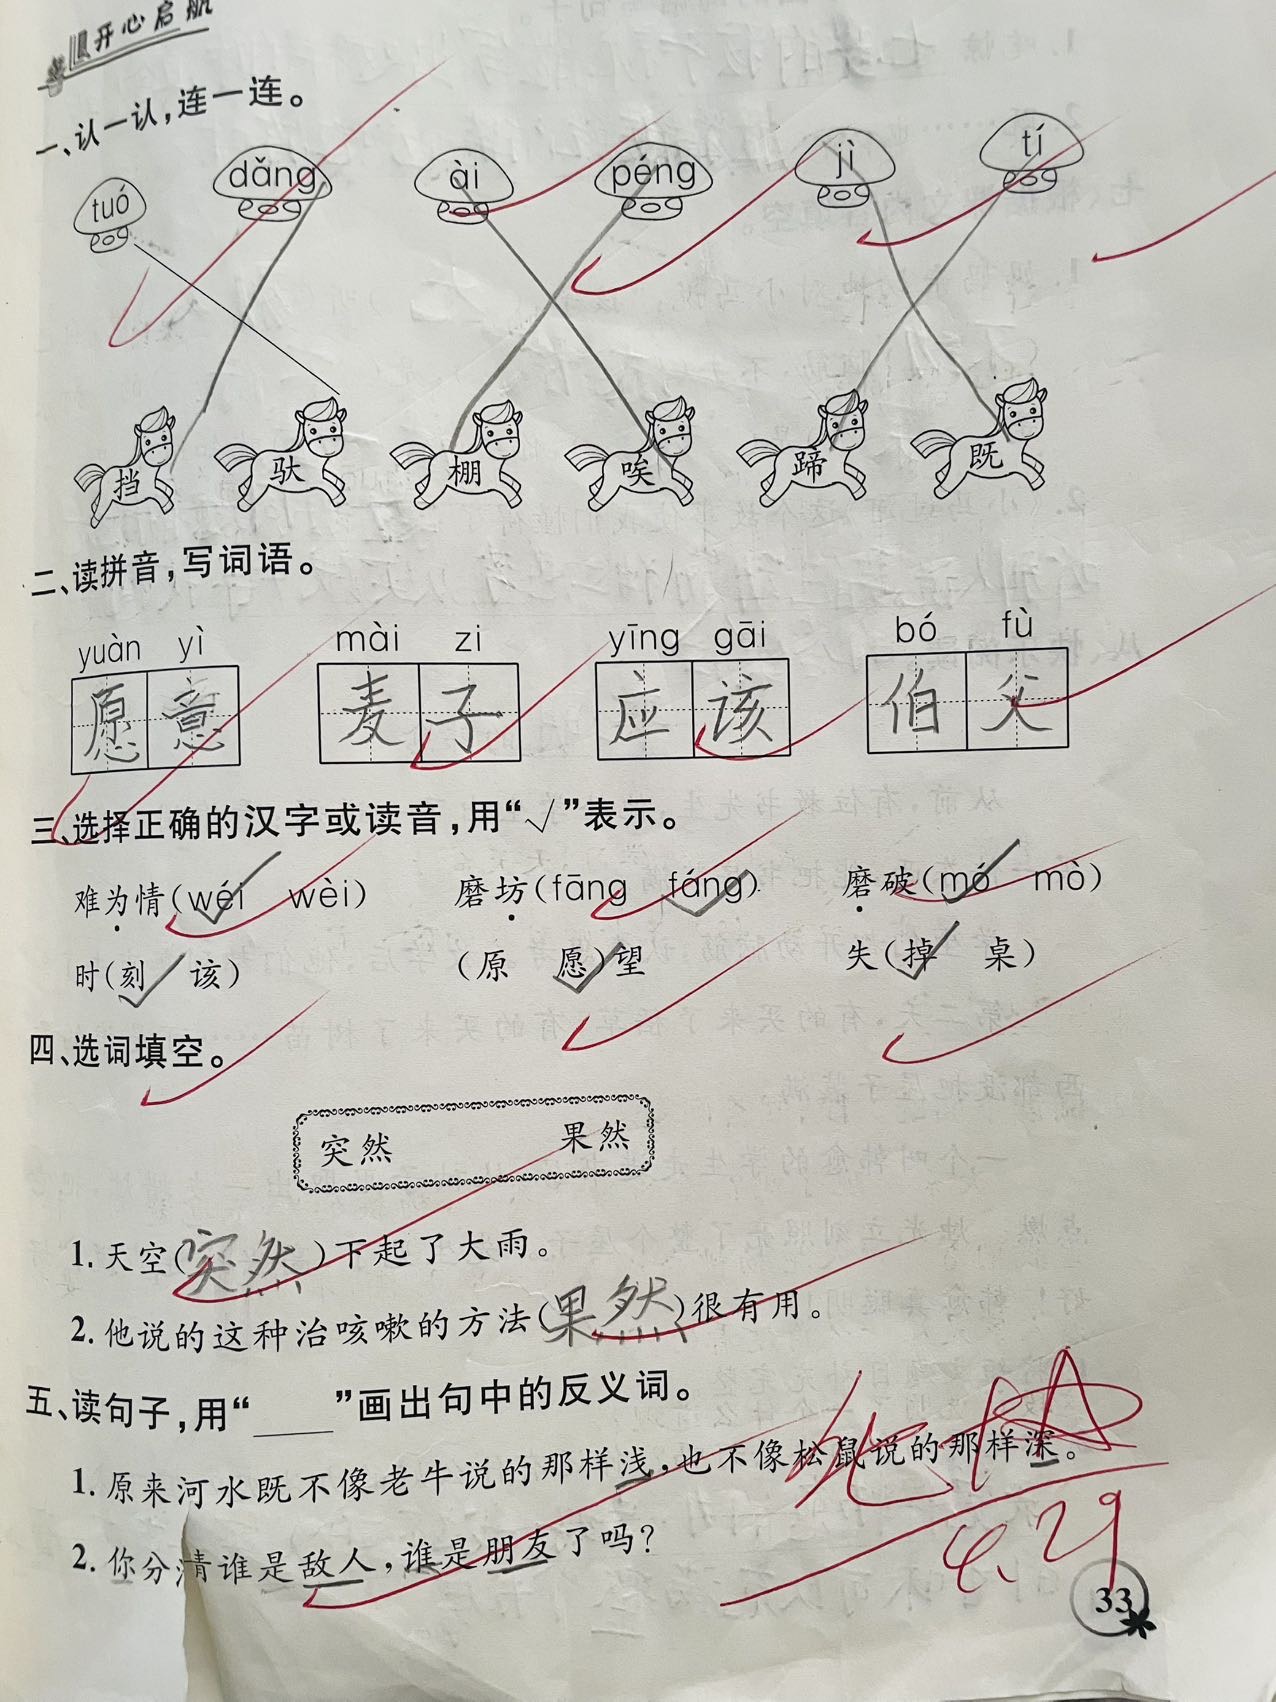 开心启航
一、认一认,连一连。
tuó dǎng ài péng jì tí
挡 驮 棚 唉 蹄 既
二、读拼音,写词语。
yuàn yì mài zi yīng gāi bó fù
愿意 麦子 应该 伯父
三、选择正确的汉字或读音,用“√”表示。
难为情(wéi√ wèi) 磨坊(fāng fáng√) 磨破(mó√ mò)
时(刻√ 该) (原 愿√)望 失(掉√ 桌)
四、选词填空。
突然 果然
1. 天空(突然)下起了大雨。
2. 他说的这种治咳嗽的方法(果然)很有用。
五、读句子,用“____”画出句中的反义词。
1. 原来河水既不像老牛说的那样浅,也不像松鼠说的那样深。
2. 你分清谁是敌人,谁是朋友了吗?
4.29
33